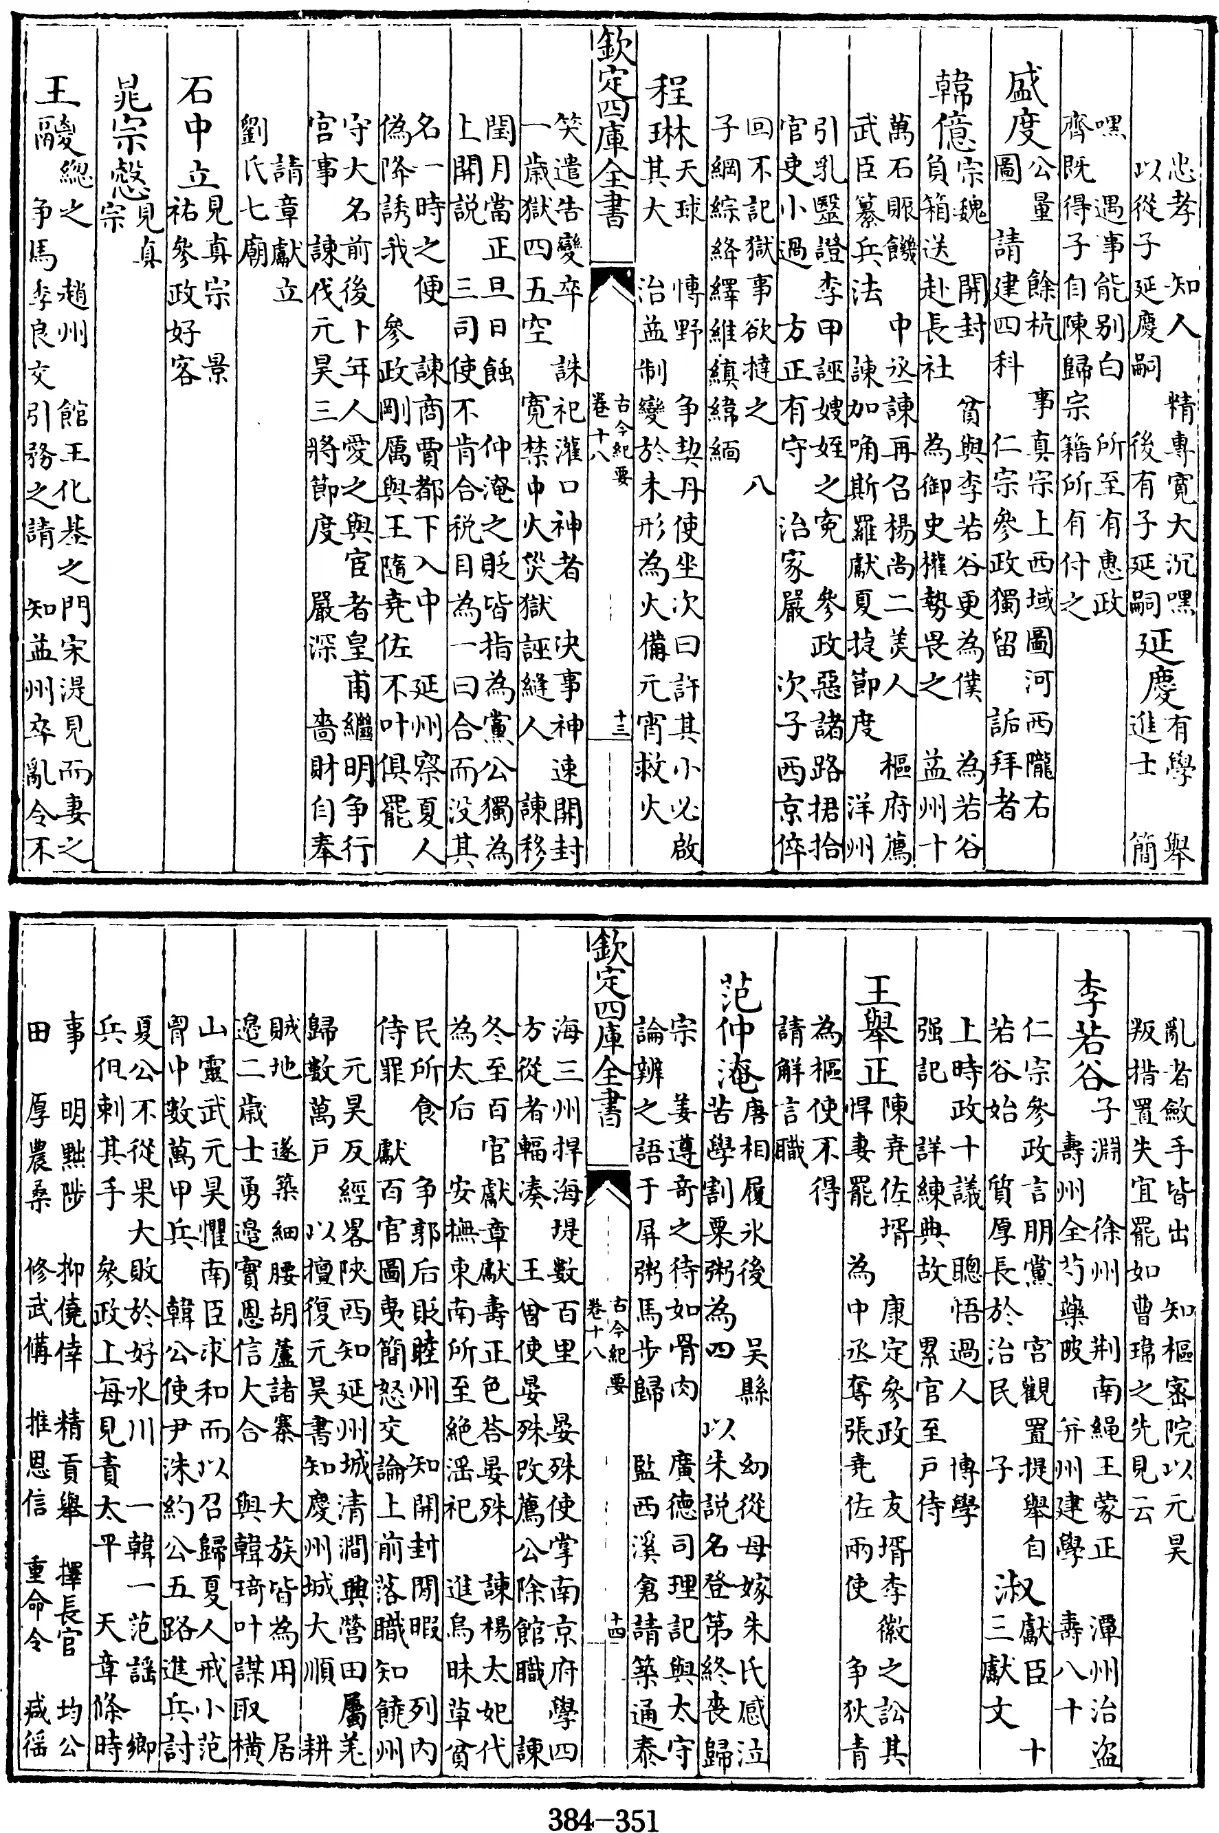 忠孝 知人 精專寬大沉嘿
以從子延慶嗣 後有子延嗣
延慶
有學 舉
進士 簡
嘿 遇事能别白 所至有惠政
齊既得子自陳歸宗籍所有付之
盛度
公量 餘杭 事真宗上西域圖河西隴右
圖 請建四科 仁宗參政獨留 詬拜者
韓億
宗魏 開封 貧與李若谷更為僕 為若谷
負箱送赴長社 為御史權勢畏之 益州十
萬石賑饑 中丞諫再召楊尚二美人 樞府薦
武臣纂兵法 諫加唃斯羅獻夏捷節度 洋州
引乳毉證李甲誣嫂姪之寃 參政惡諸路捃拾
官吏小過 方正有守 治家嚴 次子西京倅
回不記獄事欲撻之 八
子綱綜絳繹維縝緯緬
程琳
天球 慱野 争契丹使坐次曰許其小必啟
其大 治益制變於未形為火備元宵救火
欽定四庫全書
古今紀要
卷十八
十三
笑遣告變卒 誅祀灌口神者 决事神速開封
一歲獄四五空 寬禁中火災獄誣縫人 諫移
閏月當正旦日蝕 仲淹之貶皆指為黨公獨為
上開説 三司使不肯合税目為一曰合而没其
名一時之便 諫商賈都下入中 延州察夏人
偽降誘我 參政剛厲與王隨堯佐不叶俱罷
守大名前後卜年人愛之與宦者皇甫繼明争行
宫事 諫伐元昊三將節度 嚴深 嗇財自奉
請章獻立
劉氏七廟
石中立
見真宗 景
祐參政好客
晁宗慤
見真
宗
王鬷
總之 趙州 館王化基之門宋湜見而妻之
争馬李良交引務之請 知益州卒亂令不
亂者斂手皆出 知樞宻院以元昊
叛措置失宜罷如曹瑋之先見云
李若谷
子淵 徐州 荆南繩王蒙正 潭州治盗
壽州全芍藥陂 并州建學 壽八十
仁宗參政言朋黨 宫觀置提舉自
若谷始 質厚長於治民 子
淑
獻臣 十
三獻文
上時政十議 聰悟過人 博學
强記 詳練典故 累官至戸侍
王舉正
陳堯佐壻 康定參政 友壻李徽之訟其
悍妻罷 為中丞奪張堯佐兩使 争狄青
為樞使不得
請解言職
范仲淹
唐相履氷後 吳縣 幼從母嫁朱氏感泣
苦學割粟粥為四 以朱説名登第終喪歸
宗 姜遵奇之待如骨肉 廣德司理記與太守
論辨之語于屏粥馬步歸 監西溪倉請築通泰
欽定四庫全書
古今紀要
卷十八
十四
海三州捍海堤數百里 晏殊使掌南京府學四
方從者輻湊 王曾使晏殊改薦公除館職 諫
冬至百官獻章獻壽正色荅晏殊 諫楊太妃代
為太后 安撫東南所至絶滛祀 進烏昧草貧
民所食 争郭后貶睦州 知開封閒暇 列内
侍罪 獻百官圖夷簡怒交論上前落職知饒州
元昊反經畧陜西知延州城清澗興營田屬羌
歸數萬戸 以擅復元昊書知慶州城大順 耕
賊地 遂築細腰胡蘆諸寨 大族皆為用 居
邉二歲士勇邉實恩信大合 與韓琦叶謀取橫
山靈武元昊懼南臣求和而以召歸夏人戒小范
胷中數萬甲兵 韓公使尹洙約公五路進兵討
夏公不從果大敗於好水川 一韓一范謡 鄉
兵但刺其手 參政上每見責太平 天章條時
事 明黜陟 抑僥倖 精貢舉 擇長官 均公
田 厚農桑 修武備 推恩信 重命令 减徭
384-351